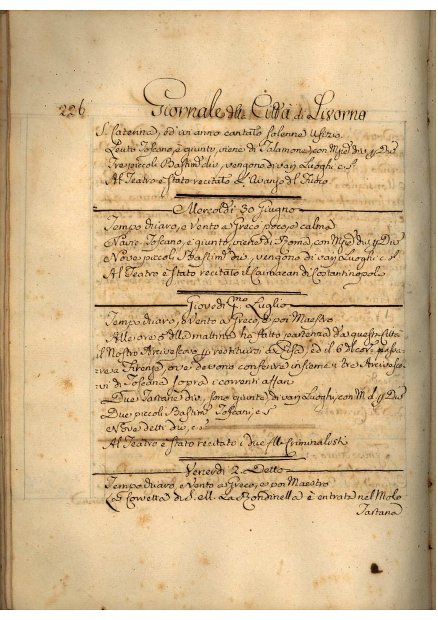 226 Giornale della Città di Livorno
S. Caterina, ed in anno cantato solenne Ufizio
Leuto Toscano, è giunto, viene di Talamone, con
Tre piccoli Bastim.ti div., vengono di varj Luoghi c. S.
Al Teatro è stato recitato
Mercoledì 30 Giugno
Tempo chiaro, e Vento a Greco poco, e calma
Navic. Toscano, è giunto, viene di Roma, con div. p. Div.
Nove piccoli Bastim. div., vengono di varj Luoghi c. S.
Al Teatro è stato recitato il Caimacan di Costantinopoli
Giovedì P.mo Luglio
Tempo chiaro, e Vento a Greco, e poi Maestro
Alle ore 5 della mattina ha fatto partenza da questa Città
il Nostro Arcivescovo restituirsi a Pisa, ed il 6 del corr.
Firenze, ove devono conferire insieme i tre Arcivesco-
vi di Toscana sopra i correnti affari
Due Tartane div., sono giunte, di varj Luoghi, con M. d. p. Div.
Due piccoli Bastim. Toscani, c. S.
Nove detti div., c. S.
Al Teatro è stato recitato i due Criminalisti
Venerdì 2. Detto
Tempo chiaro, e Vento a Greco, e poi Maestro
La Corvetta di S. M. La Rondinella è entrata nel Molo
Tartana